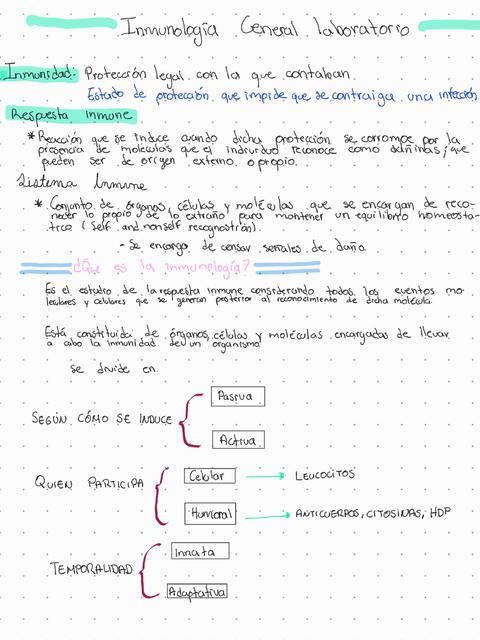 Inmunología General laboratorio
Inmunidad: Protección legal con la que contaban
Estado de protección que impide que se contraiga una infección
Respuesta inmune
* Reacción que se induce cuando dicha protección se corrompe por la
presencia de moléculas que el individuo reconoce como dañinas, que
pueden ser de origen externo o propio.
Sistema Inmune
* Conjunto de órganos, células y moléculas que se encargan de reco-
nocer lo propio de lo extraño para mantener un equilibrio homeostá-
tico (Self and nonself recognotrion).
- Se encarga de censar señales de daño
¿Que es la inmunología?
Es el estudio de la respuesta inmune considerando todos los eventos mo-
leculares y celulares que se generan posterior al reconocimiento de dicha molécula
Está constituida de órganos, células y moléculas encargadas de llevar
a cabo la inmunidad de un organismo
se divide en
SEGÚN CÓMO SE INDUCE
Pasiva
Activa
QUIEN PARTICIPA
Celular → LEUCOCITOS
Humoral → ANTICUERPOS, CITOSINAS, HDP
TEMPORALIDAD
Innata
Adaptativa